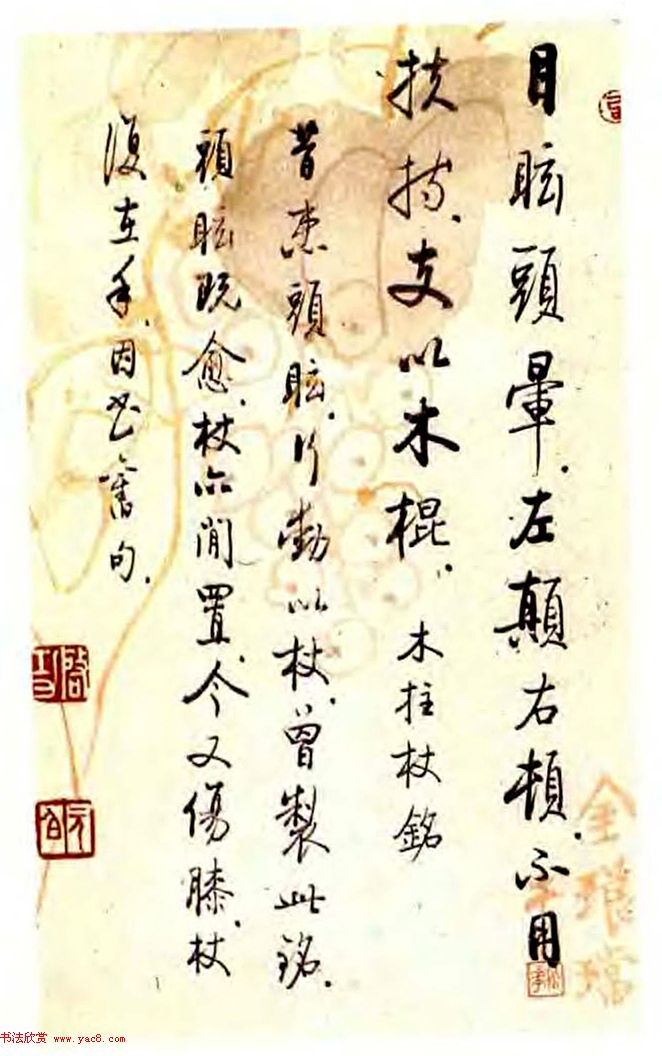 目眩頭暈左顛右頓不用
扶持支以木棍 木拄杖銘
昔患頭眩行動以杖曾製此銘
頭眩既愈杖亦閒置今又傷膝杖
復在手因書舊句
啟功
元白
金琅璫
书法欣赏 www.yac8.com